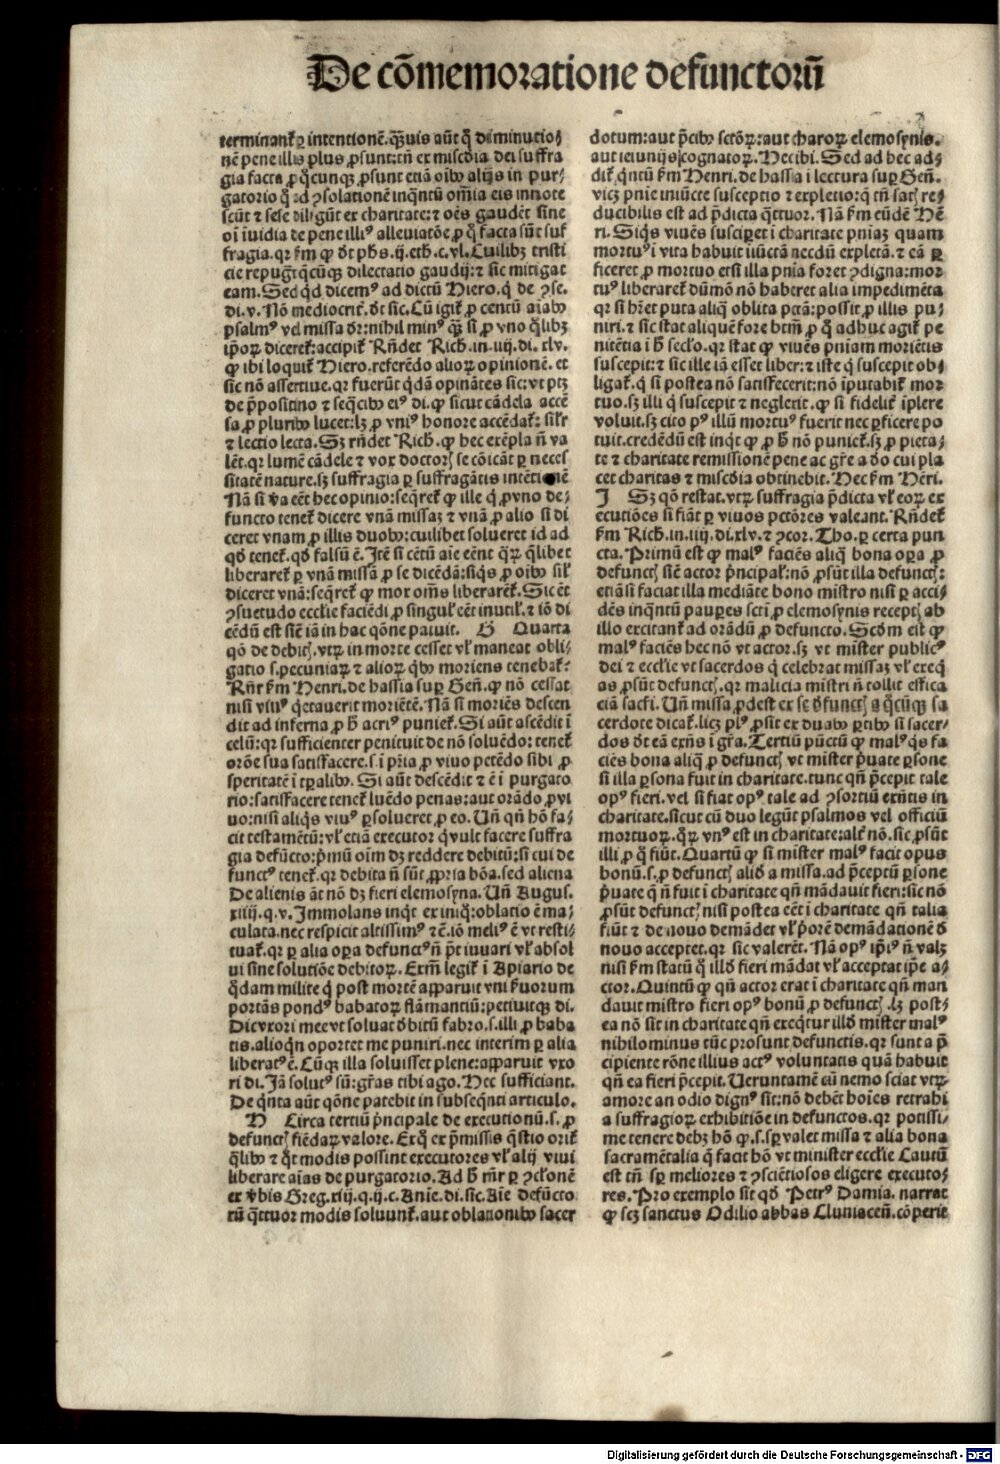 De cōmemoratione defunctorū
terminant᷑ ꝑ intentionē. quāuis aūt ꝙ ad diminutio⸗
nē pene illis plus ꝓsunt: tn̄ ex miscd̄ia dei suffra
gia facta ꝓ q̄cunqꝫ ꝓsunt etiā oībꝰ alijs in pur⸗
gatorio q̄ ad ꝯsolationē inq̄ntū om̄ia eis innote
scūt ⁊ sese diligūt ex charitate: ⁊ oēs gaudēt sine
oī īuidia de pene illiꝰ alleuiatōe ꝓ q̄ facta sūt suf
fragia. qꝛ s̄m ꝙ dt̄ phs. ij. eth. c. vl. Cuilibꝫ tristi
cie repugt̄ q̄cūqꝫ dilectatio gaudij: ⁊ sic mitigat
eam. Sed qd̄ dicemꝰ ad dictū Hiero. q̄ de ꝯse.
di. v. Nō mediocrit᷑. dt̄ sic. Cū igit᷑ ꝓ centū aīabꝰ
psalmꝰ vel missa dr̄: nihil minꝰ q̄ꝫ si ꝓ vno q̄libꝫ
ip̄oꝝ diceret᷑: accipit᷑ Rn̄det Rich. in. iiij. di. xlv.
ꝙ ibi loquit᷑ Hiero. referēdo alioꝝ opinionē. et
sic nō assertiue. qꝛ fuerūt q̄dā opinātes sic: vt ptꝫ
de p̄positino ⁊ seq̄cibꝰ eiꝰ di. ꝙ sicut cādela accē
sa ꝓ pluribꝰ lucet: lꝫ ꝓ vniꝰ honore accēdat᷑: silꝛ
⁊ lectio lecta. Sꝫ rn̄det Rich. ꝙ hec exēpla n̄ va
lēt. qꝛ lumē cādele ⁊ vox doctorꝭ se cōicāt ꝑ neces
sitatē nature. sꝫ suffragia ꝑ suffragātis intētionē
Nā si v̄a eēt hec opinio: seq̄ret᷑ ꝙ ille q̄ ꝓ vno de⸗
functo tenet᷑ dicere vnā missaꝫ ⁊ vnā ꝓ alio si di
ceret vnam ꝓ illis duobꝰ: cuilibet solueret id ad
qd̄ tenet᷑. qd̄ falsū ē. Itē si cētū aīe eēnt q̄ꝝ q̄libet
liberaret᷑ ꝑ vnā missā ꝓ se dicēdā: siqͥs ꝓ oībꝰ sil᷑
diceret vnā: seq̄ret᷑ ꝙ mox om̄s liberarēt᷑. Sic ēt
ꝯsuetudo eccl̄ie faciēdi ꝓ singul᷑ eēt inutil᷑. ⁊ iō di
cēdū est sic̄ iā in hac qōne patuit. G Quarta
qō de debitꝭ. vtꝝ in morte cesset vl̓ maneat obli⸗
gatio s. pecuniaꝝ ⁊ alioꝝ q̄bꝰ moriens tenebat᷑:
Rn̄r s̄m Henri. de hassia suꝑ Gen̄. ꝙ nō cessat
nisi viuꝰ q̄etauerit moriētē. Nā si moriēs descen
dit ad inferna ꝓ h̄ acriꝰ puniet᷑. Si aūt ascēdit ī
celū: qꝛ sufficienter penituit de nō soluēdo: tenet᷑
orōe sua satisfacere. s. ī pr̄ia ꝓ viuo petēdo sibi ꝓ
speritatē ī tꝑalibꝰ. Si aūt descēdit ⁊ ē ī purgato
rio: satisfacere tenet᷑ luēdo penas: aut orādo ꝓ vi
uo: nisi aliqͥs viuꝰ ꝑsolueret ꝓ eo. Un̄ qn̄ hō fa⸗
cit testamētū: vl̓ etiā executor q̄ vult facere suffra
gia defūcto: pͥmū oīm dꝫ reddere debitū: si cui de
functꝰ tenet᷑. qꝛ debita n̄ sūt ꝓpria bōa. sed aliena
De alienis āt nō dꝫ fieri elemosyna. Un̄ Augus.
xiiij. q. v. Immolans inqͥt ex iniq̄: oblatio ē ma⸗
culata. nec respicit altissimꝰ ⁊c̄. iō meliꝰ ē vt resti⸗
tuat᷑. qꝛ ꝑ alia oꝑa defunctꝰ n̄ pt̄ iuuari vl̓ absol
ui sine solutiōe debitoꝝ. Exm̄ legit᷑ ī Apiario de
q̄dam milite q̄ post mortē apparuit vni suorum
portās pondꝰ babatoꝝ flāmantiū: petiuitqꝫ di.
Dic vxori mee vt soluat dbitū fabro. s. illi ꝓ baba
tis. alioqn̄ oportet me puniri. nec interim ꝑ alia
liberatꝰ ē. Cūqꝫ illa soluisset plene: apparuit vxo
ri di. Iā solutꝰ sū: gr̄as tibi ago. Hec sufficiant.
De qͥnta aūt qōne patebit in subseq̄nti articulo.
H Circa tertiū pͥncipale de executionū. s. ꝓ
defunctꝭ fiēdaꝝ valore. Ex q̄ ex p̄missis q̄stio orit᷑
q̄libꝰ ⁊ q̄t modis possint executores vl̓ alij viui
liberare aīas de purgatorio. Ad h̄ mr̄ ꝑ ꝯclonē
ex v̓bis Greg. xiij. q. ij. c. Anie. di. sic. Aīe defūcto
rū q̄ttuor modis soluunt᷑. aut oblationibꝰ sacer
dotum: aut p̄cibꝰ sctōꝝ: aut charoꝝ elemosynis.
aut ieiunijs cognatoꝝ. Hec ibi. Sed ad hec ad⸗
dit᷑ q̄ntū s̄m Henri. de hassia ī lectura suꝑ Gen̄.
vicꝫ pn̄ie iniūcte susceptio ⁊ expletio: q̄ tn̄ satꝭ re⸗
ducibilis est ad p̄dicta q̄ttuor. Nā s̄m eūdē Hē
ri. Siqͥs viuēs susciperet ī charitate pn̄iaꝫ quam
mortuꝰ ī vita habuit iiūctā necdū expletā. ⁊ eā ꝑ
ficeret ꝓ mortuo etsi illa pn̄ia foret ꝯdigna: mor
tuꝰ liberaret᷑ dūmō nō haberet alia impedimēta
qꝛ si hr̄et puta aliq̄ oblita pctā: possit ꝓ illis pu⸗
niri. ⁊ sic stat aliquē fore btm̄ ꝓ q̄ adhuc agit᷑ pe
nitētia ī h̄ secl̓o. qꝛ stat ꝙ viuēs pn̄iam moriētis
suscepit: ⁊ sic ille iā esset liber: ⁊ iste q̄ suscepit ob⸗
ligat᷑. q̄ si postea nō satisfecerit: nō īputabit᷑ mor
tuo. sꝫ illi q̄ suscepit ⁊ neglerit. ꝙ si fidelit᷑ īplere
voluit. sꝫ cito pꝰ illū mortuꝰ fuerit nec ꝑficere po
tuit. credēdū est inqͥt ꝙ ꝓ h̄ nō puniet᷑. sꝫ ꝓ pieta⸗
te ⁊ charitate remissionē pene ac gr̄e a dō cui pla
cet charitas ⁊ miscd̄ia obtinebit. Hec s̄m Hēri.
I Sꝫ qō restat. vtꝝ suffragia p̄dicta vl̓ eoꝝ ex
ecutiōes si fiāt ꝑ viuos pctōres valeant. Rn̄det᷑
s̄m Rich. in. iiij. di. xlv. ⁊ ꝯcor. Tho. ꝑ certa pun
cta. Primū est ꝙ malꝰ faciēs aliq̄ bona oꝑa ꝓ
defunctꝭ sic̄ actor pͥncipal᷑: nō ꝓsūt illa defunctꝭ:
etiā si faciat illa mediāte bono mīstro nisi ꝑ acci⸗
dēs inq̄ntū pauꝑes scti ꝓ elemosynis receptꝭ ab
illo excitant᷑ ad orādū ꝓ defuncto. Scd̄m est ꝙ
malꝰ faciēs hec nō vt actor. sꝫ vt mīster publicꝰ
dei ⁊ eccl̄ie vt sacerdos q̄ celebrat missaꝫ vl̓ exeq̄
as ꝓsūt defunctꝭ. qꝛ malicia mīstri n̄ tollit effica
ciā sacr̄i. Un̄ missa ꝓdest ex se dfunctꝭ a q̄cūqꝫ sa
cerdote dicat᷑. licꝫ plꝰ ꝓsit ex duabꝰ ꝑtibꝰ si sacer⸗
dos dt̄ eā exn̄s ī gr̄a. Tertiū pūctū ꝙ malꝰ q̄s fa
ciēs bona aliq̄ ꝓ defunctꝭ vt mīster pͥuate ꝑsone
si illa ꝑsona fuit in charitate. tunc qn̄ p̄cepit tale
opꝰ fieri. vel si fiat opꝰ tale ad ꝯsortiū exn̄tis in
charitate. sicut cū duo legūt psalmos vel officiū
mortuoꝝ. q̄ꝝ vnꝰ est in charitate: alt᷑ nō. sic ꝓsūt
illi ꝓ q̄ fiūt. Quartū ꝙ si mīster malꝰ facit opus
bonū. s. ꝓ defunctꝭ aliō a missa. ad p̄ceptū ꝑsone
pͥuate q̄ n̄ fuit ī charitate qn̄ mādauit fieri: sic nō
ꝓsūt defunctꝭ nisi postea eēt ī charitate qn̄ talia
fiūt ⁊ de nouo demādet vl̓ pͥorē demādationē d̄
nouo acceptet. qꝛ sic valerēt. Nā opꝰ ip̄iꝰ n̄ valꝫ
nisi s̄m statū q̄ illd̄ fieri mādat vl̓ acceptat ip̄e a⸗
ctor. Quintū ꝙ qn̄ actor erat ī charitate qn̄ man
dauit mīstro fieri opꝰ bonū ꝓ defunctꝭ. lꝫ post⸗
ea nō sit in charitate qn̄ exeq̄tur illd̄ mīster malꝰ
nihilominus tūc prosunt defunctis. qꝛ sunt a p̄
cipiente rōne illius actꝰ voluntatis quā habuit
qn̄ ea fieri p̄cepit. Ueruntamē cū nemo sciat vtꝝ
amore an odio dignꝰ sit: nō debēt hoīes retrahi
a suffragioꝝ exhibitiōe in defunctos. qꝛ potissi⸗
me tenere debꝫ hō ꝙ. s. sꝑ valet missa ⁊ alia bona
sacramētalia q̄ facit hō vt minister eccl̄ie Cautū
est tn̄ sꝑ meliores ⁊ ꝯsciētiosos eligere executo⸗
res. Pro exemplo sit qd̄ Petrꝰ Damia. narrat
ꝙ scꝫ sanctus Odilio abbas Cluniacen̄. cōperit
Digitalisierung gefördert durch die Deutsche Forschungsgemeinschaft - DFG